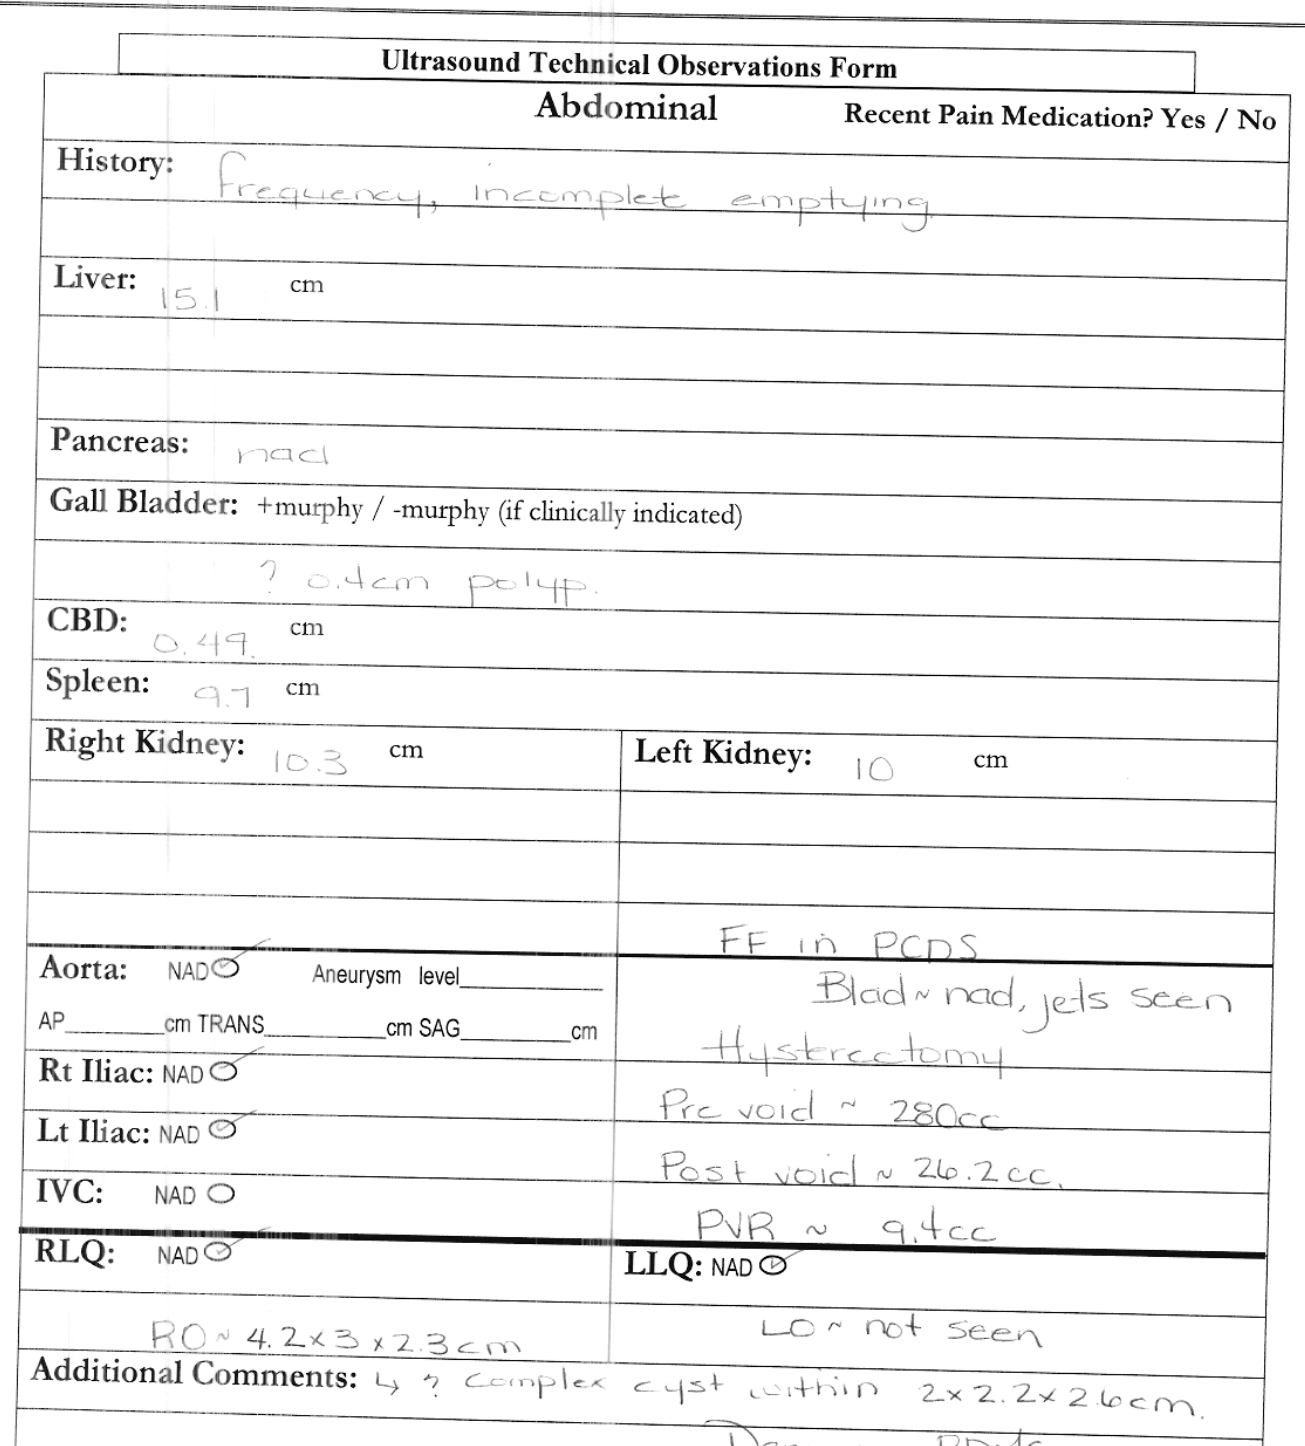 Ultrasound Technical Observations Form
Abdominal Recent Pain Medication? Yes / No
History: frequency, incomplete emptying
Liver: 15.1 cm
Pancreas: nad
Gall Bladder: +murphy / -murphy (if clinically indicated)
? 0.4cm polyp.
CBD: 0.49. cm
Spleen: 9.7 cm
Right Kidney: 10.3 cm Left Kidney: 10 cm
FF in PCDS
Aorta: NAD Aneurysm level
Blad ~ nad, jets seen
AP cm TRANS cm SAG cm
Hysterectomy
Rt Iliac: NAD
Pre void ~ 280cc
Lt Iliac: NAD
Post void ~ 26.2cc.
IVC: NAD
PVR ~ 9.4cc
RLQ: NAD LLQ: NAD
RO ~ 4.2 x 3 x 2.3cm LO ~ not seen
Additional Comments: ↳ ? complex cyst within 2 x 2.2 x 2.6cm.